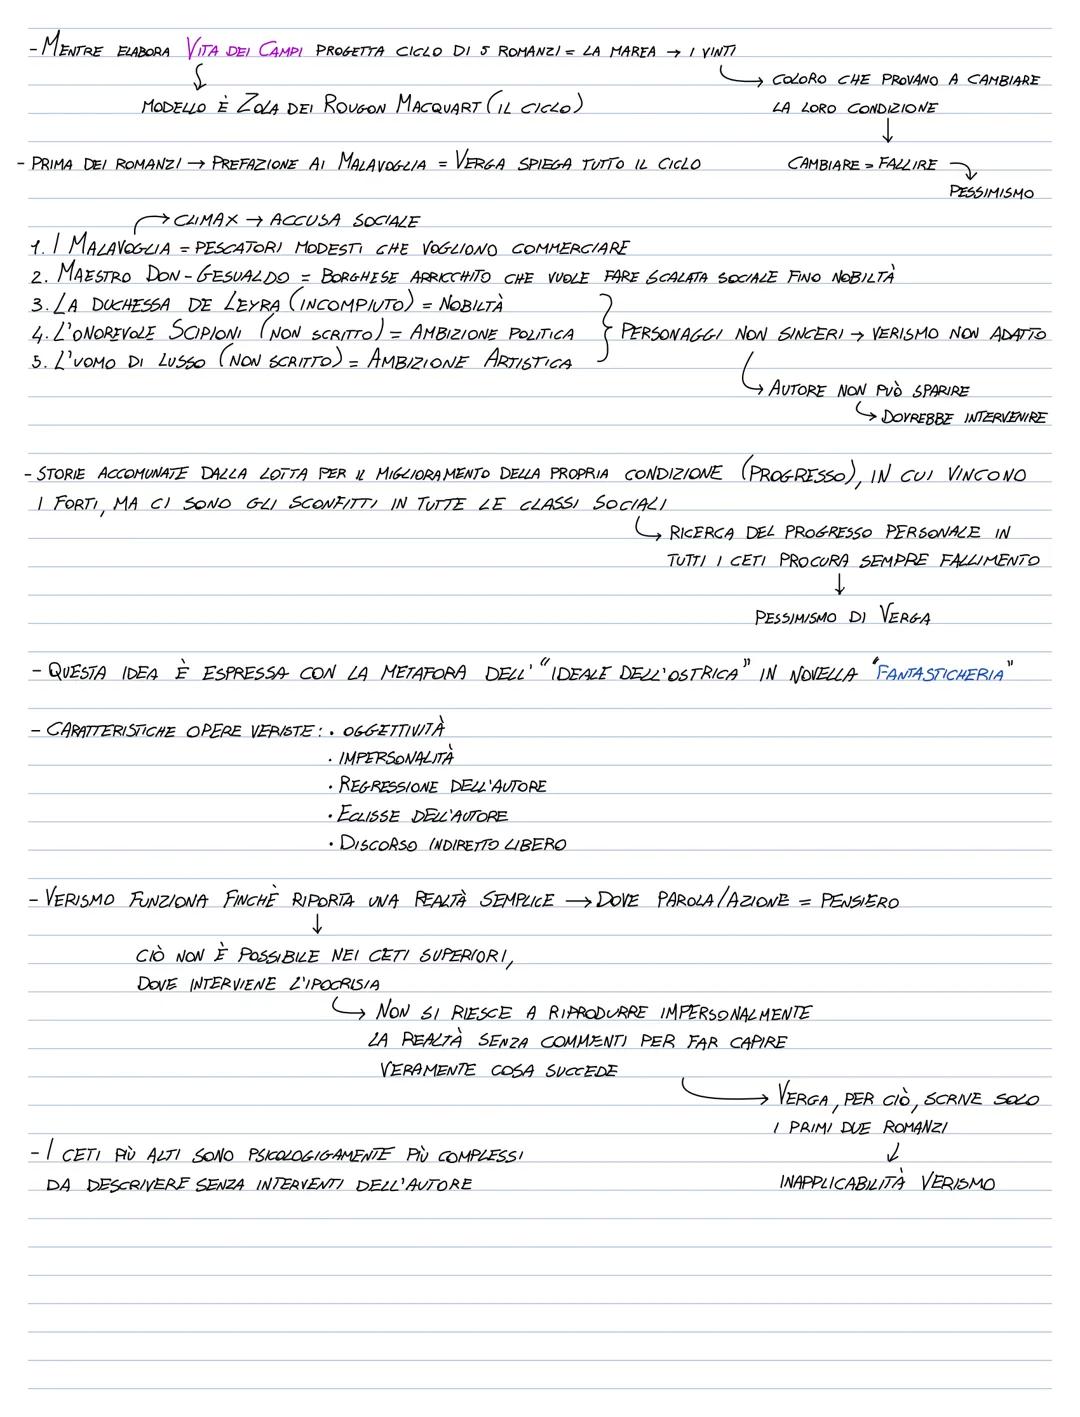 - MENTRE ELABORA VITA DEI CAMPI PROGETTA CICLO DI 5 ROMANZI = LA MAREA → I VINTI
↳ COLORO CHE PROVANO A CAMBIARE
MODELLO È ZOLA DEI ROUGON MACQUART (IL CICLO)
LA LORO CONDIZIONE
↓
- PRIMA DEI ROMANZI → PREFAZIONE AI MALAVOGLIA = VERGA SPIEGA TUTTO IL CICLO
CAMBIARE = FALLIRE
PESSIMISMO
→ CLIMAX → ACCUSA SOCIALE
1. I MALAVOGLIA = PESCATORI MODESTI CHE VOGLIONO COMMERCIARE
2. MAESTRO DON-GESUALDO = BORGHESE ARRICCHITO CHE VUOLE FARE SCALATA SOCIALE FINO NOBILTÀ
3. LA DUCHESSA DE LEYRA (INCOMPIUTO) = NOBILTÀ
4. L'ONOREVOLE SCIPIONI (NON SCRITTO) = AMBIZIONE POLITICA } PERSONAGGI NON SINCERI → VERISMO NON ADATTO
5. L'UOMO DI LUSSO (NON SCRITTO) = AMBIZIONE ARTISTICA
↳ AUTORE NON PUÒ SPARIRE
↳ DOVREBBE INTERVENIRE
- STORIE ACCOMUNATE DALLA LOTTA PER IL MIGLIORAMENTO DELLA PROPRIA CONDIZIONE (PROGRESSO), IN CUI VINCONO
I FORTI, MA CI SONO GLI SCONFITTI IN TUTTE LE CLASSI SOCIALI
↳ RICERCA DEL PROGRESSO PERSONALE IN
TUTTI I CETI PROCURA SEMPRE FALLIMENTO
↓
PESSIMISMO DI VERGA
- QUESTA IDEA È ESPRESSA CON LA METAFORA DELL'"IDEALE DELL'OSTRICA" IN NOVELLA "FANTASTICHERIA"
- CARATTERISTICHE OPERE VERISTE: · OGGETTIVITÀ
· IMPERSONALITÀ
· REGRESSIONE DELL'AUTORE
· ECLISSE DELL'AUTORE
· DISCORSO INDIRETTO LIBERO
- VERISMO FUNZIONA FINCHÈ RIPORTA UNA REALTÀ SEMPLICE → DOVE PAROLA/AZIONE = PENSIERO
↓
CIÒ NON È POSSIBILE NEI CETI SUPERIORI,
DOVE INTERVIENE L'IPOCRISIA
↳ NON SI RIESCE A RIPRODURRE IMPERSONALMENTE
LA REALTÀ SENZA COMMENTI PER FAR CAPIRE
VERAMENTE COSA SUCCEDE
→ VERGA, PER CIÒ, SCRIVE SOLO
I PRIMI DUE ROMANZI
↓
INAPPLICABILITÀ VERISMO
- I CETI PIÙ ALTI SONO PSICOLOGIGAMENTE PIÙ COMPLESSI
DA DESCRIVERE SENZA INTERVENTI DELL'AUTORE